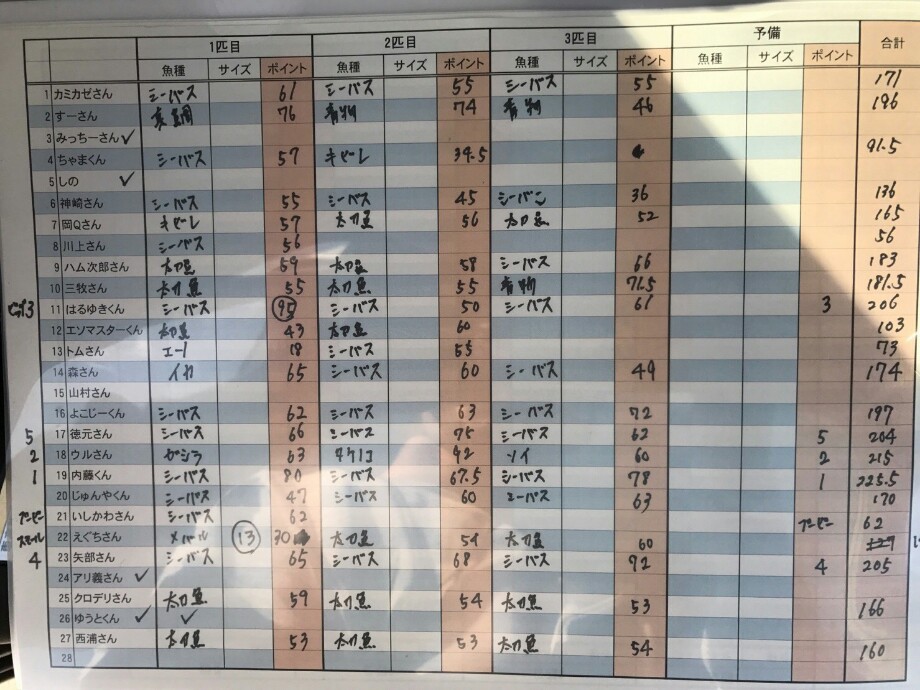 1匹目 2匹目 3匹目 予備 合計
魚種 サイズ ポイント 魚種 サイズ ポイント 魚種 サイズ ポイント 魚種 サイズ ポイント
1 カミカゼさん シーバス 61 シーバス 55 シーバス 55 171
2 すーさん 真鯛 76 青物 74 青物 46 196
3 みっちーさん ✓
4 ちゃまくん シーバス 57 キビレ 34.5 91.5
5 しの ✓
6 神崎さん シーバス 55 シーバス 45 36 136
7 岡Qさん キビレ 57 太刀魚 56 太刀魚 52 165
8 川上さん シーバス 56 56
9 ハム次郎さん 太刀魚 59 太刀魚 58 シーバス 66 183
10 三牧さん 太刀魚 55 太刀魚 55 青物 71.5 181.5
3 11 はるゆきくん シーバス 95 シーバス 50 シーバス 61 3 206
12 エソマスターくん 太刀魚 43 太刀魚 60 103
13 トムさん 18 シーバス 55 73
14 森さん イカ 65 シーバス 60 シーバス 49 174
15 山村さん
16 よこじーくん シーバス 62 シーバス 63 シーバス 72 197
5 17 徳元さん シーバス 66 シーバス 75 シーバス 62 5 204
2 18 ウルさん ガシラ 63 タケノコ 92 ソイ 60 2 215
1 19 内藤くん シーバス 80 シーバス 67.5 シーバス 78 1 225.5
20 じゅんやくん シーバス 47 シーバス 60 シーバス 63 170
ブービー 21 いしかわさん シーバス 62 ブービー 62
スモール 22 えぐちさん メバル 13 30 太刀魚 54 太刀魚 60
4 23 矢部さん シーバス 65 シーバス 68 シーバス 72 4 205
24 アリ義さん ✓
25 クロデリさん 太刀魚 59 太刀魚 54 太刀魚 53 166
26 ゆうとくん ✓ ✓
27 西浦さん 太刀魚 53 太刀魚 53 太刀魚 54 160
28